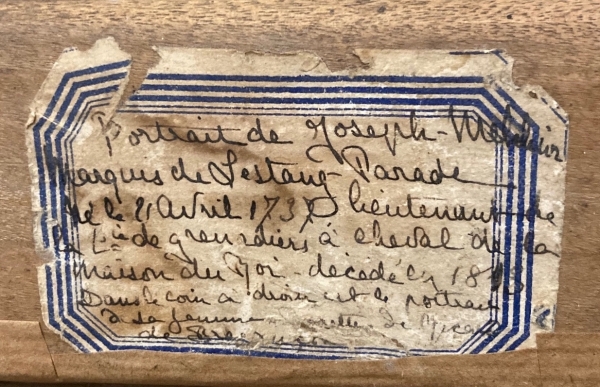 Portrait de Joseph-Melchior
Marquis de Lestang Parade
né le 21 Avril 1737 lieutenant de
la Cie de grenadiers à cheval de la
maison du Roi - décédé en
Dans le coin à droite est le portrait
de sa femme de
de